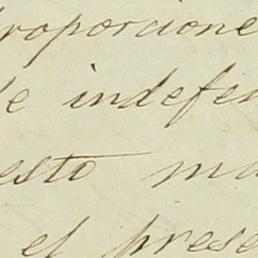 proporcione
de indefen
esto ma
el prese